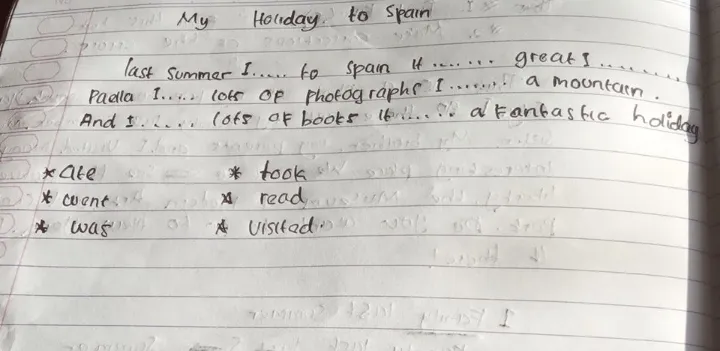 My Holiday to Spain
last summer I..... to Spain it ....... great I .........
Paella I..... lots of photographs I....... a mountain.
And I...... lots of books it ...... a fantastic holiday
* ate * took
* went * read
* was * visited.